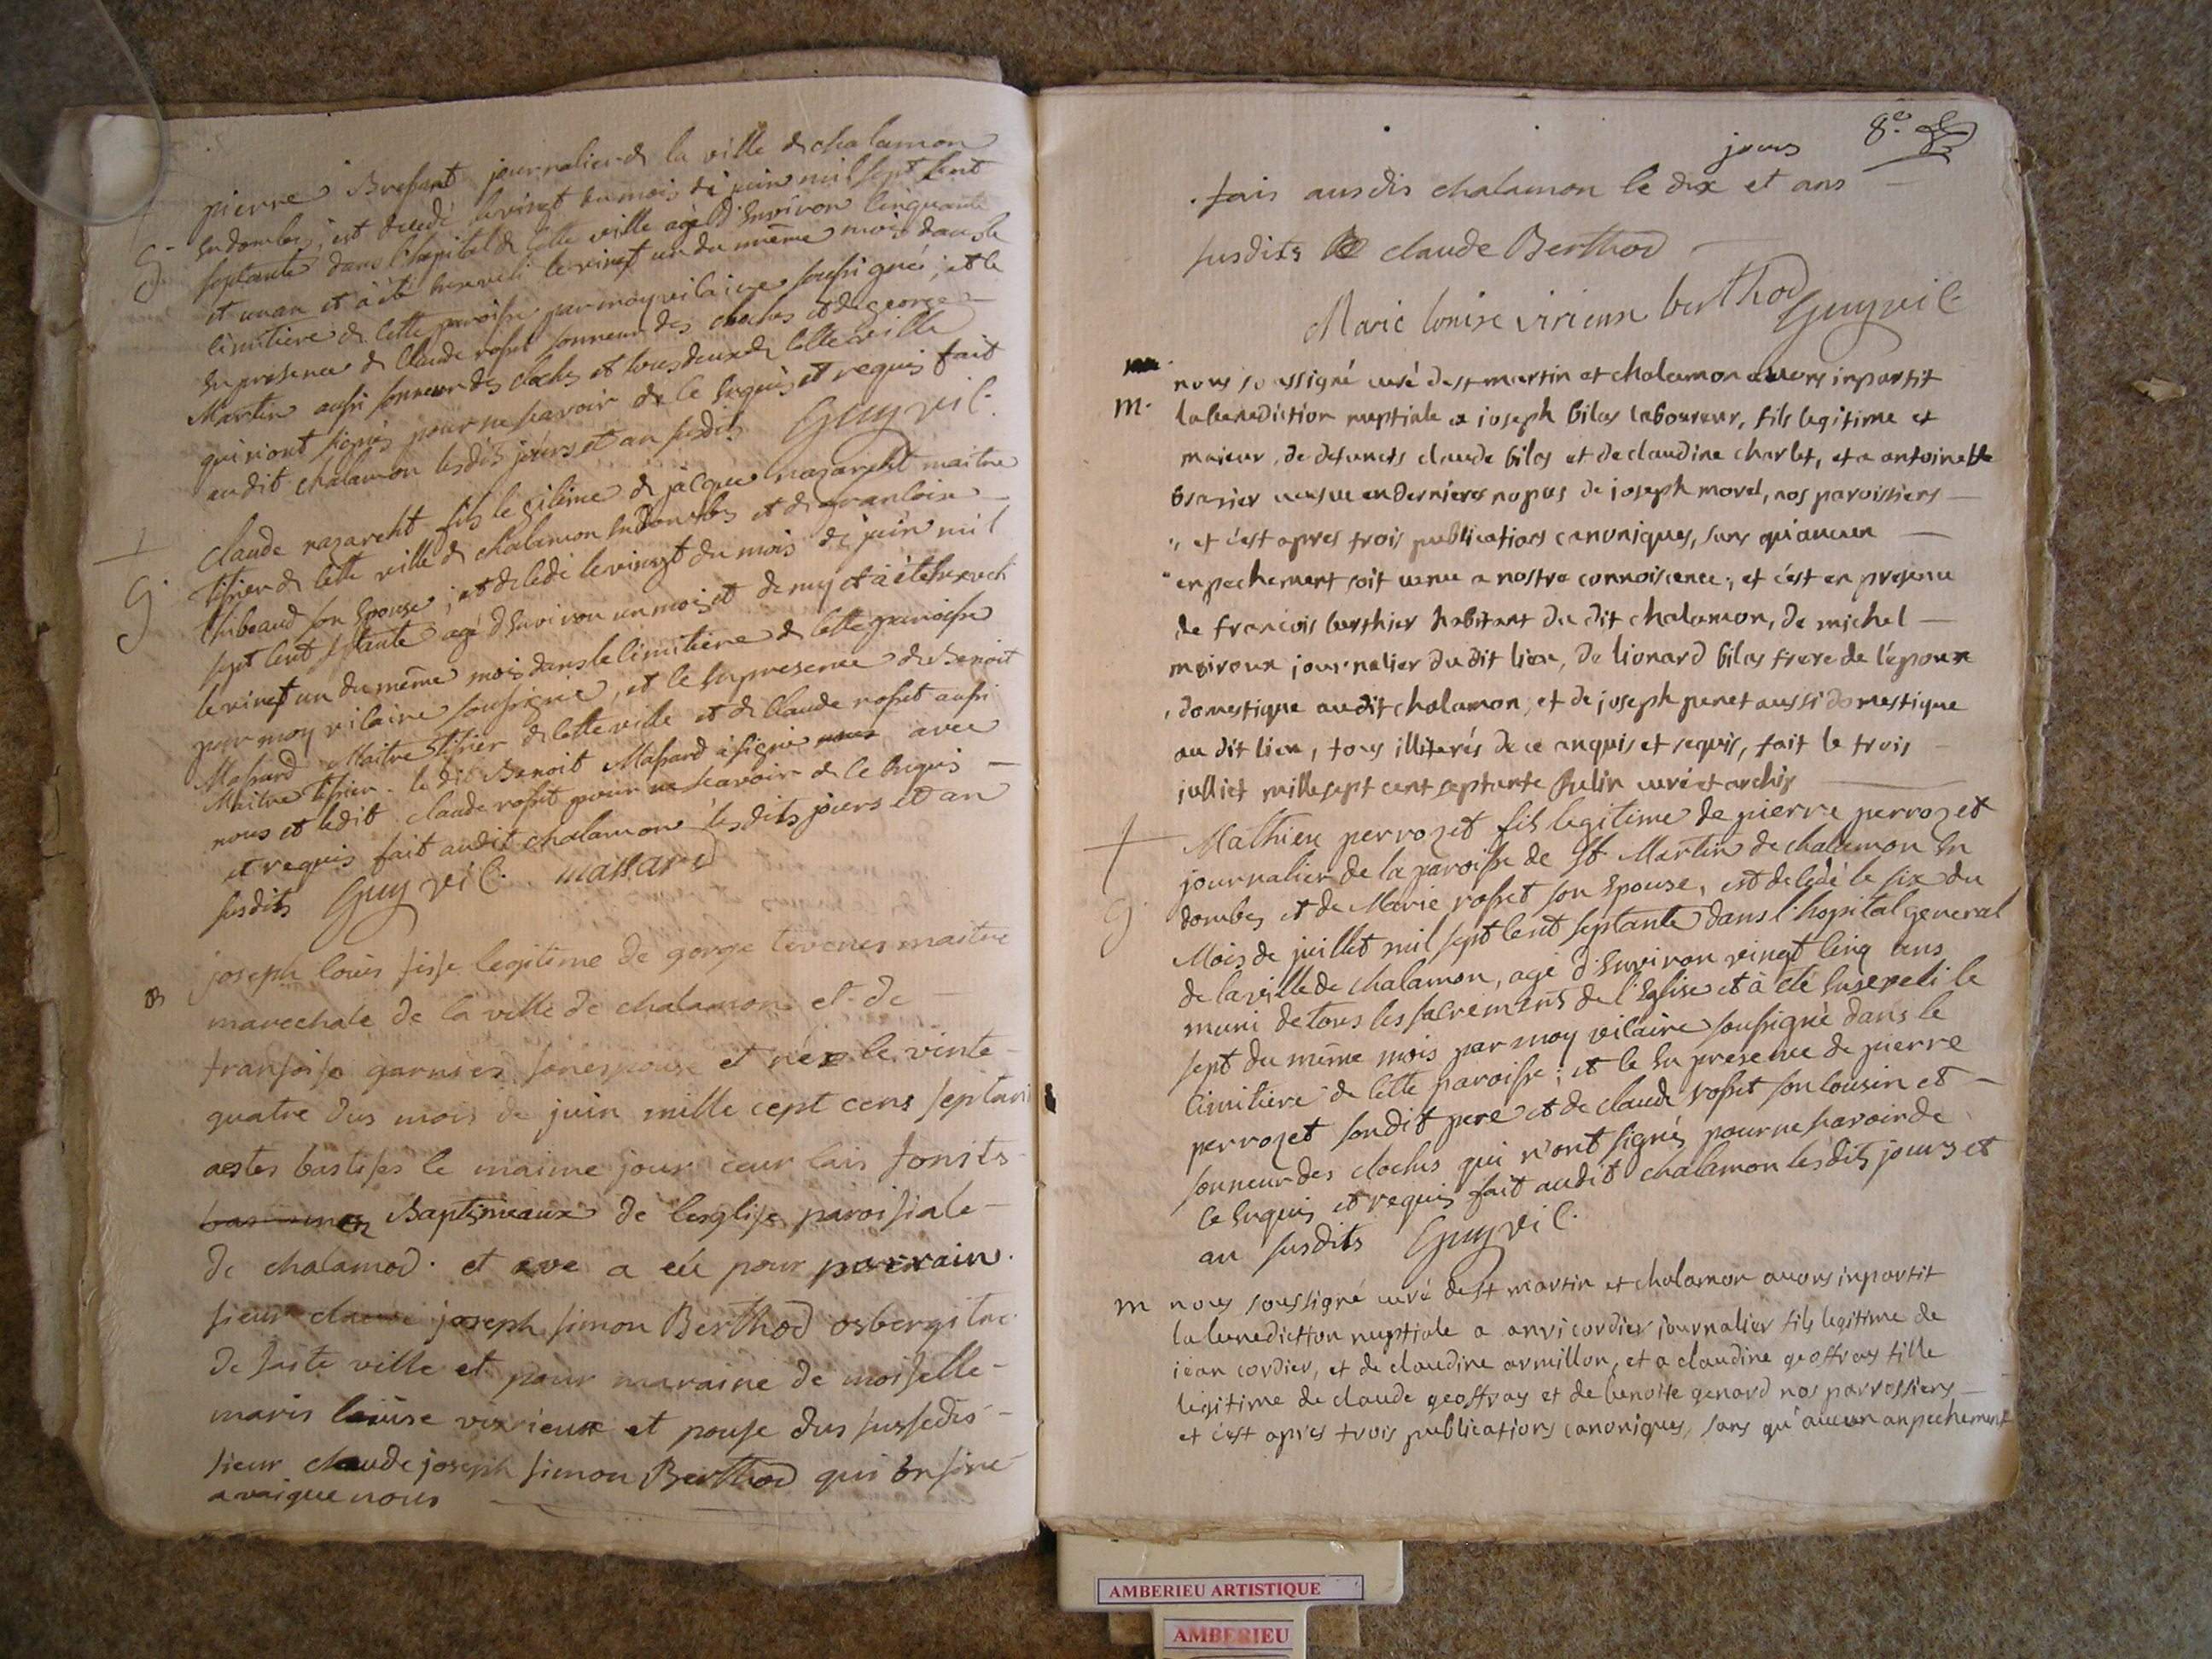 pierre Bressant journalier de la ville de chalamon
G. en dombes, est decedé le vingt du mois de juin mil sept cent
septante dans l'hopital de cette ville agé d'environ cinquante
et un an et à été enseveli le vingt un du même mois dans le
cimitiere de cette paroisse par moy vicaire soussigné, et ce
en presence de claude rosset sonneur des cloches et de george
Martin aussi sonneur des cloches et tous deux de cette ville
qui n'ont signés pour ne scavoir de ce enquis et requis fait
audit chalamon lesdits jours et an susdits Guy vic.
claude nazareht fils legitime de jacque nazareht maitre
G. tissier de cette ville de chalamon en Dombes et de francoise
thibeaud son epouse, est decedé le vingt du mois de juin mil
sept cent septante agé d'environ un mois et demy et à été enseveli
le vingt un du même mois dans le cimitiere de cette paroisse
par moy vicaire soussigné, et ce en presence de Benoit
Massard Maitre tissier de cette ville et de claude rosset aussi
Maitre tissier. le dit Benoit Massard à signé avec
nous et ledit claude rosset pour ne scavoir de ce enquis
et requis fait audit chalamon lesdits jours et an
susdits Guy vic. massard
B joseph louis fisse legitime de gorge tevenes maitre
marechale de la ville de chalamon et de
fransoise garnier sonespouse et née le vinte
quatre dus mois de juin mille cept cens septan
aestes bastises le maime jour ceur lais fonsts
Baptimeaux de lesglise paroisiale
de chalamod. et a eú pour parrain
sieur claude joseph simon Berthod osbergitre
de saite ville et pour maraine de moiselle
maris louise virieux et pouse dus sussedis
sieur claude joseph simon Berthod qui on sine
avaique nous
8e
jours
fais ausdis chalamon le dix et ans
susdits claude Berthod
Marie louise virieux berthod Guy vic
m. nous soussigné curé de st martin et chalamon avons inpartit
la benediction nuptiale a joseph bilas laboureur, fils legitime et
maieur, de defuncts claude bilas et de claudine charlet, et a antoinette
brasier veusve en dernieres nopces de joseph morel, nos paroissiens
, et c'est apres trois publications canoniques, sans qu'aucun
enpechement soit venu a nostre connoiscence, et c'est en presence
de francois berthier habitant du dit chalamon, de michel
moiroux journalier du dit lieu, de lionard bilas frere de l'epoux
, domestique audit chalamon, et de joseph penet aussi domestique
au dit lieu, tous illiterés de ce anquis et requis, fait le trois
julliet mille sept cent septante Julin curé et archip
Mathieu perrozet fils legitime de pierre perrozet
journalier de la paroisse de St Martin de chalamon en
G dombes et de Marie rosset son epouse, est decedé le six du
Mois de juillet mil sept cent septante dans l'hopital general
de la ville de chalamon, agé d'environ vingt cinq ans
muni de tous les sacrements de l'Eglise et à été enseveli le
sept du même mois par moy vicaire soussigné dans le
cimitiere de cette paroisse; et ce en presence de pierre
perrozet sondit pere et de claude rosset son cousin et
sonneur des cloches qui n'ont signés pour ne scavoir de
ce enquis et requis fait audit chalamon lesdits jours et
an susdits Guy vic.
m nous soussigné curé de st martin et chalamon avons inpartit
la benediction nuptiale a anri cordier journalier fils legitime de
iean cordier, et de claudine armillon, et a claudine geoffray fille
legitime de claude geoffray et de benoite genard nos parrossiens
et c'est apres trois publications canoniques, sans qu'aucun anpechement
AMBERIEU ARTISTIQUE
AMBERIEU